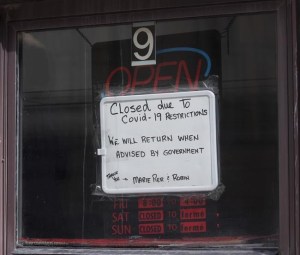 9
OPEN
Closed due to
Covid-19 RESTRICTIONS
WE WILL RETURN WHEN
ADVISED BY GOVERNMENT
Thank
You
FRI TO
SAT CLOSED TO
SUN CLOSED TO